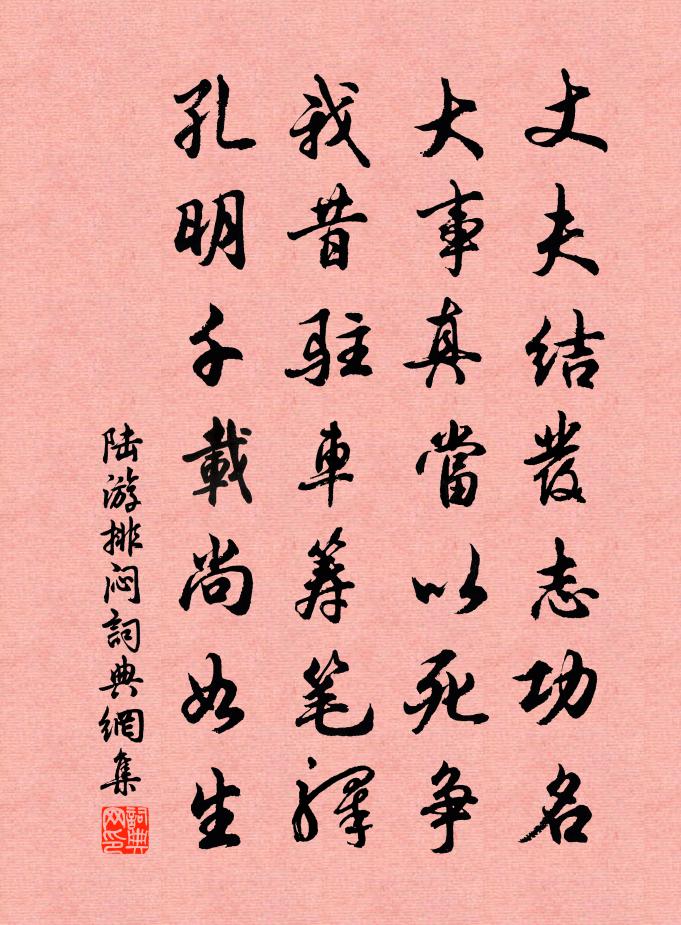 丈夫結發志功名
大事真當以死争
我昔駐車筹笔驛
孔明千載尚如生
陆游排闷詞典網集
詞典网印